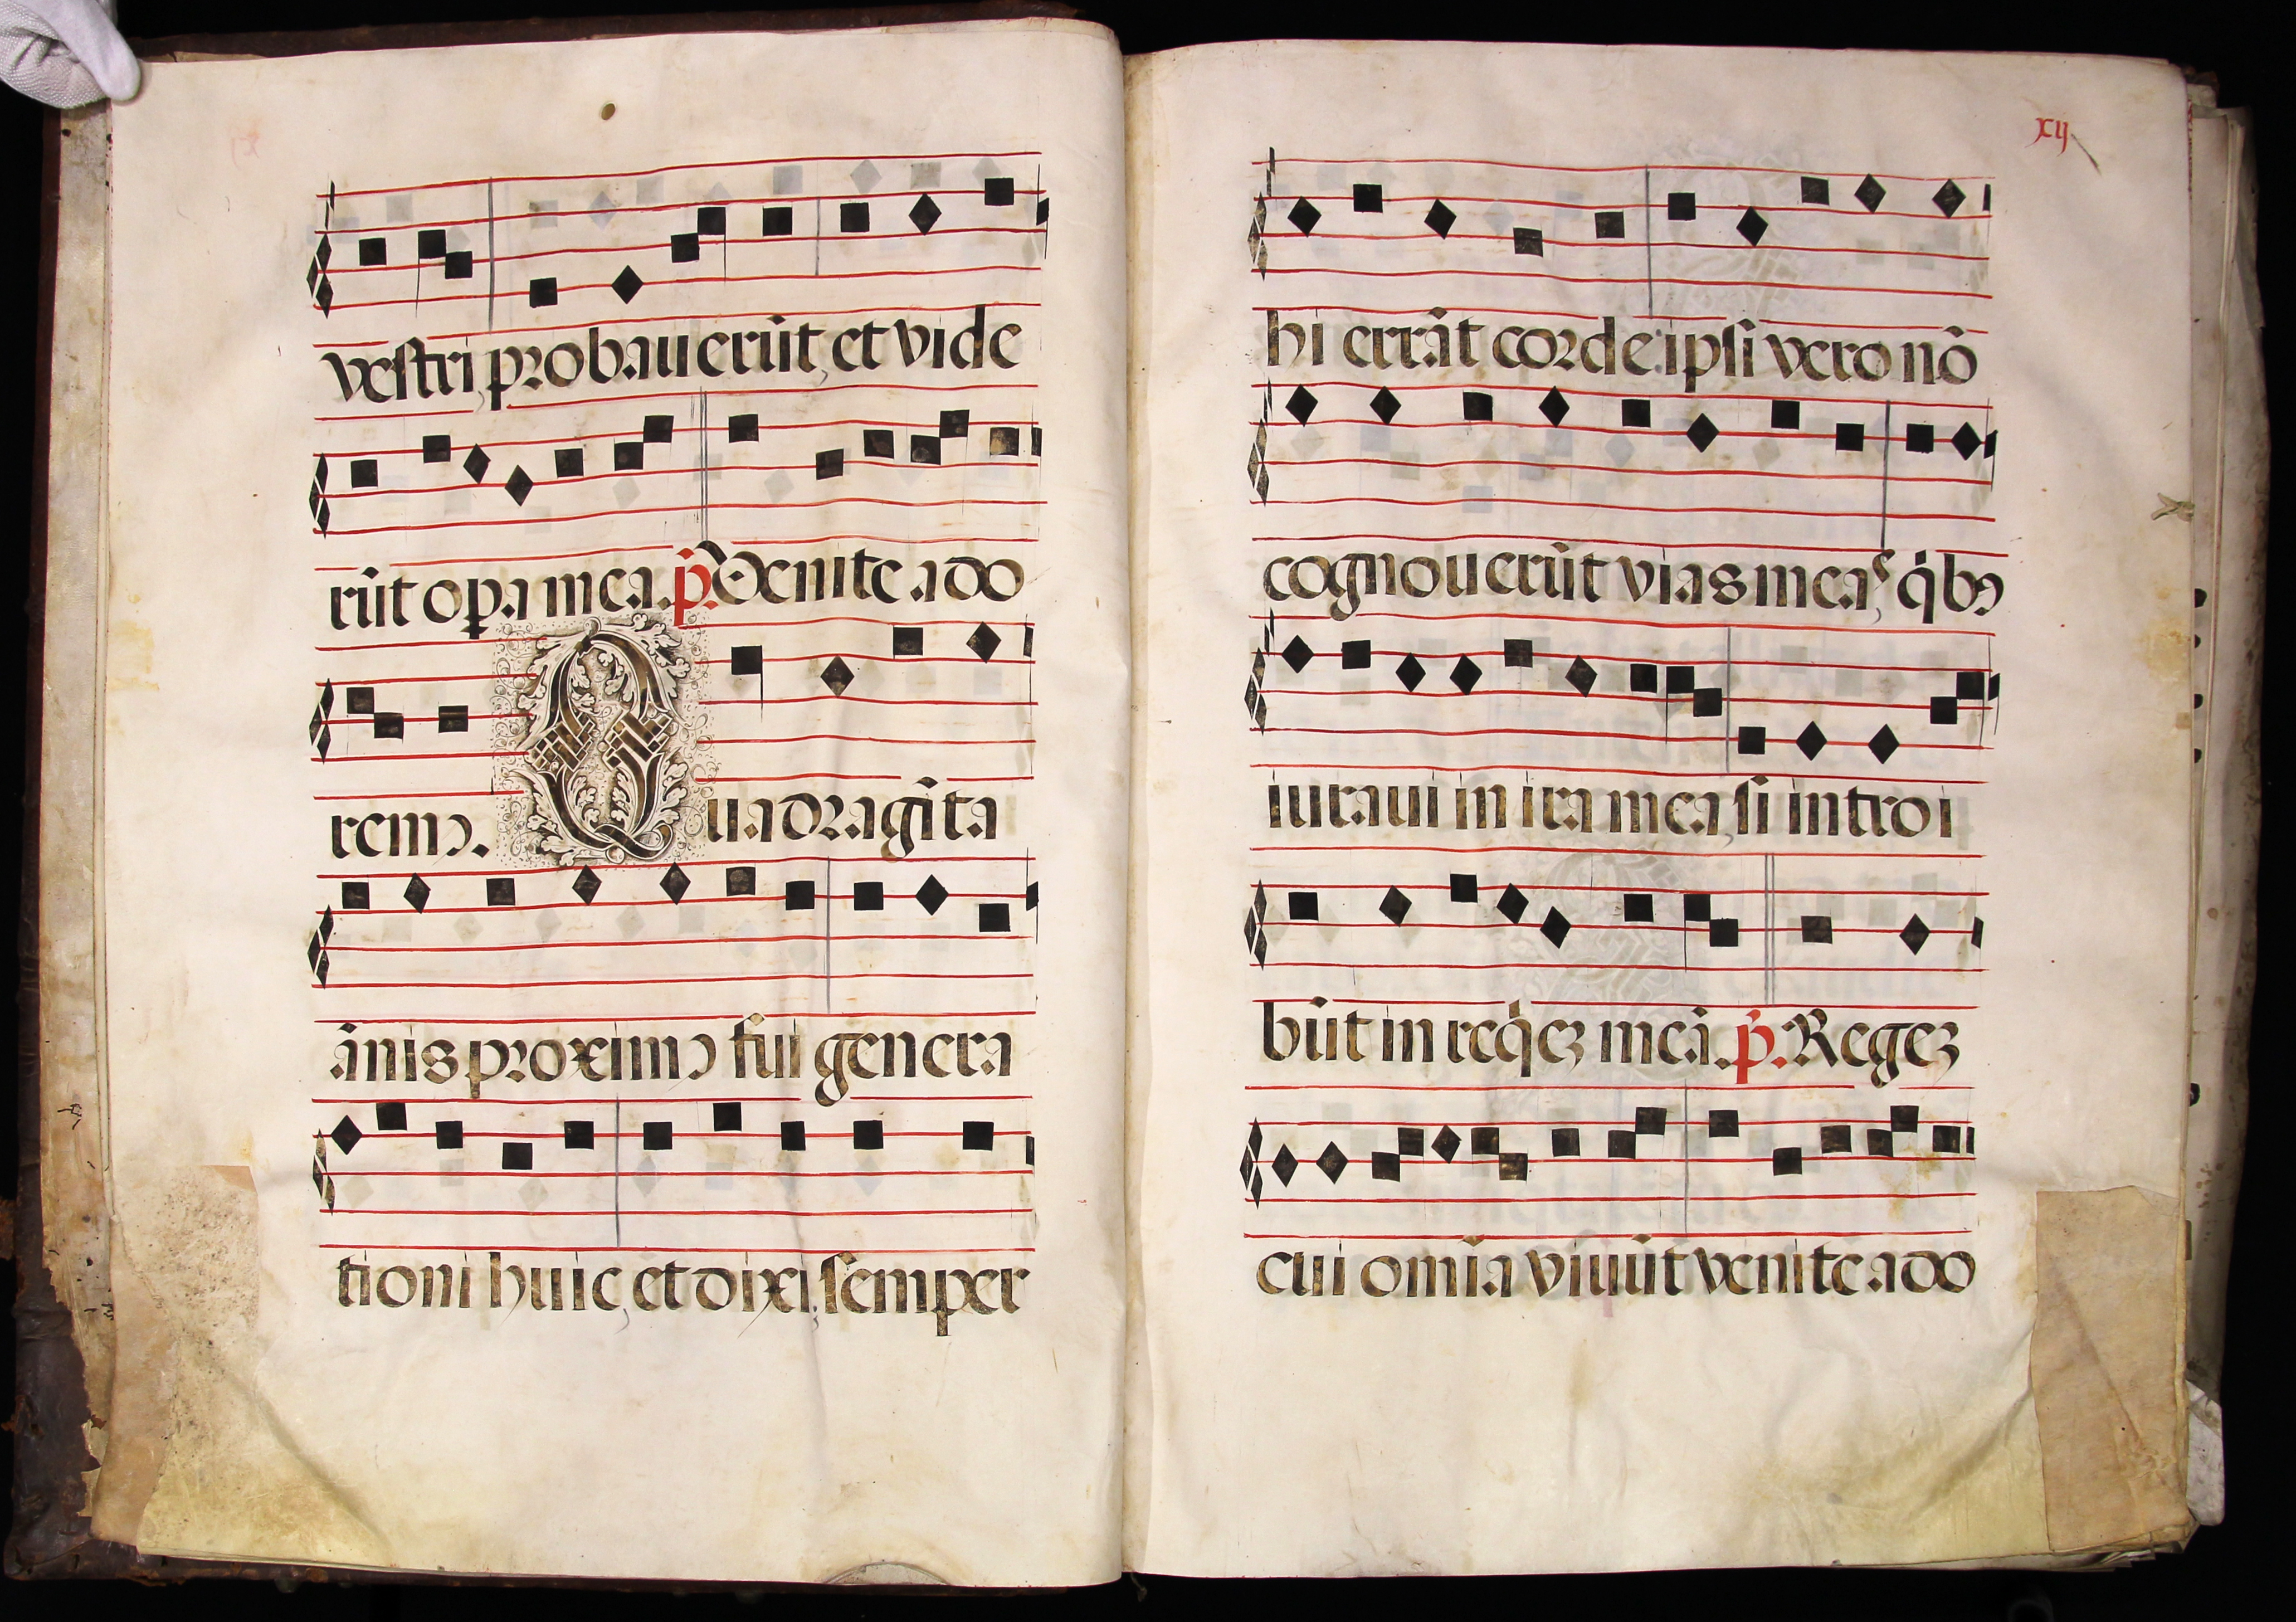 vestri, probauerūt, et vide
rūt opa mea. p̄. Venite ado
remꝰ. Quadragīta
ānis proximꝰ fui genera
tioni huic, et dixi, semper
xij
hi errāt corde: ipsi vero nō
cognouerūt vias meas, qͥbꝰ
iuraui in ira mea, si introi
būt in reqͥeꝫ meā. p̄. Regeꝫ
cui omīa viuūt venite ado